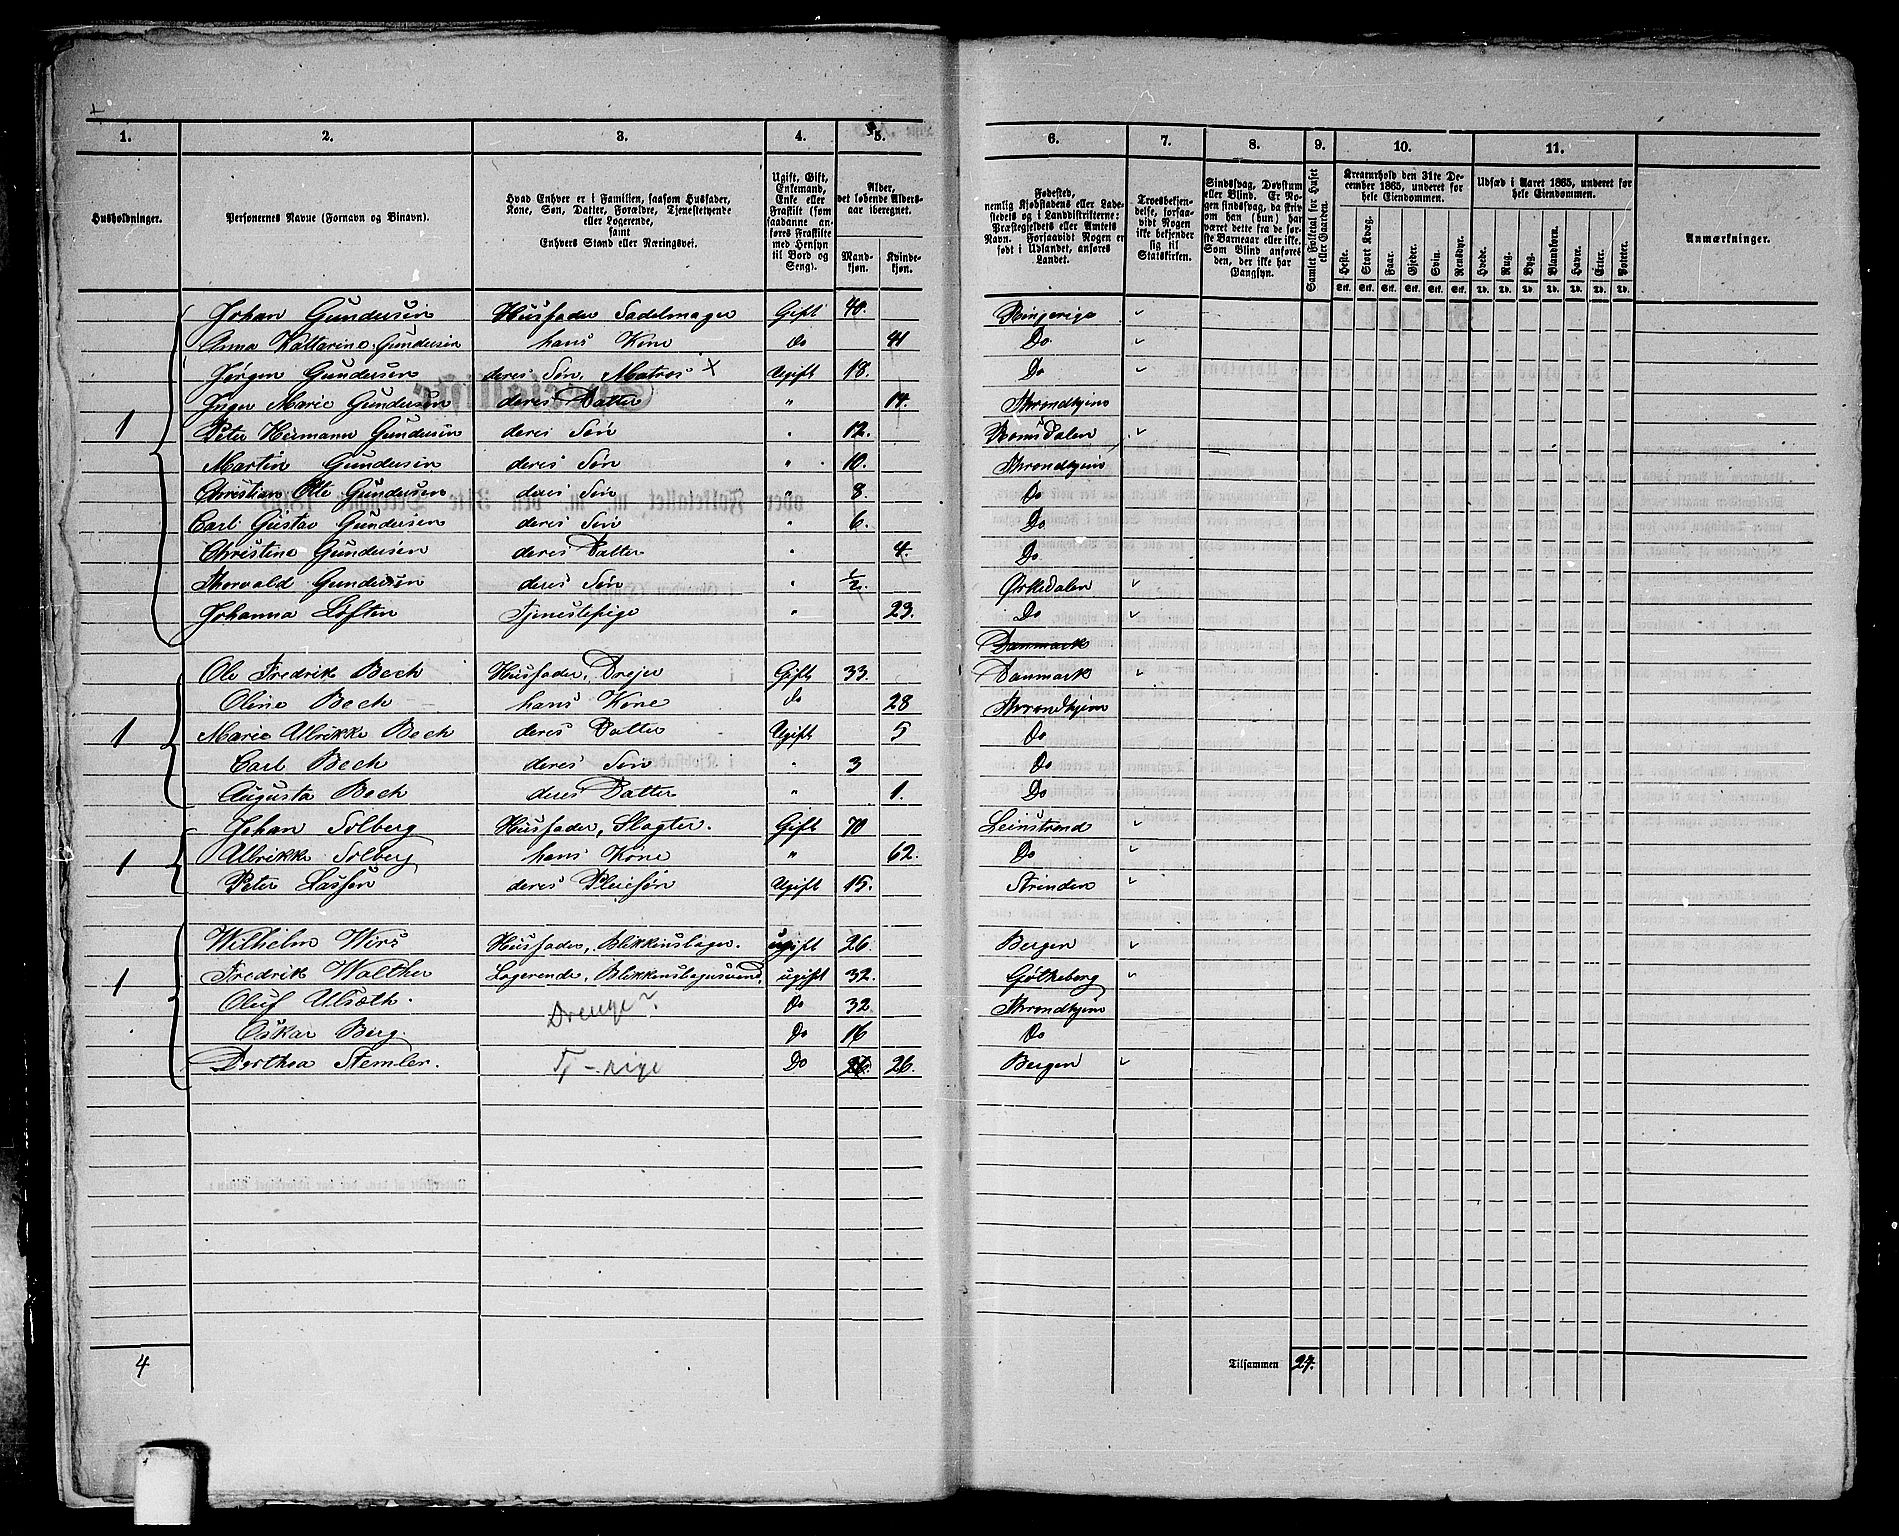 1. 2. 3. 4. 5. 6. 7. 8. 9. 10. 11.
Husholdninger.
Personernes Navne (Fornavn og Binavn).
Hvad Enhver er i Familien, saasom Husfader,
Kone, Søn, Datter, Forældre, Tjenestetyende
eller Logerende,
samt
Enhvers Stand eller Næringsvei.
Ugift, Gift,
Enkemand,
Enke eller
Fraskilt (som
saadanne an-
føres Fraskilte
med Hensyn
til Bord og
Seng).
Alder,
det løbende Alders-
aar iberegnet.
Mand-
kjøn.
Kvinde-
kjøn.
Fødested,
nemlig Kjøbstadens eller Lade-
stedets og i Landdistrikterne:
Præstegjeldets eller Amtets
Navn. Forsaavidt Nogen er
født i Udlandet, anføres
Landet.
Troesbekjen-
delse, forsaa-
vidt Nogen
ikke bekjender
sig til
Statskirken.
Sindssvag, Døvstum
eller Blind. Er No-
gen sindssvag, da skriv
om han (hun) har
været dette fra de før-
ste Barneaar eller ikke.
Som Blind anføres
den, der ikke har
Gangsyn.
Samlet Folketal for Huset
eller Gaarden.
Kreaturhold den 31te De-
cember 1865, underet for
hele Eiendommen.
Heste. Stort Kvæg. Faar. Gjeder. Svin. Rensdyr.
Stk. Stk. Stk. Stk. Stk. Stk.
Udsæd i Aaret 1865, underet for
hele Eiendommen.
Hvede. Rug. Byg. Blandkorn. Havre. Erter. Poteter.
Td. Td. Td. Td. Td. Td. Td.
Anmærkninger.
Johan Gundersen Husfader Sadelmager Gift 40. Ringerige
Anna Kattarine Gundersen hans Kone Do 41 Do
Jørgen Gundersen deres Søn, Matros x Ugift 18. Do
Inger Marie Gundersen deres Datter " 14. Throndhjem
1 Peter Hermann Gundersen deres Søn " 12. Romsdalen
Martin Gundersen deres Søn " 10. Throndhjem
Christian Otto Gundersen deres Søn " 8. Do
Carl Gustav Gundersen deres Søn " 6. Do
Christine Gundersen deres Datter " 4. Do
Thorvald Gundersen deres Søn " 1/2 Ørkedalen
Johanna Loften Tjenestepige " 23. Do
Danmark
Ole Fredrik Bech Husfader, Drejer Gift 33. Danmark
Oline Bech hans Kone do 28 Throndhjem
1 Marie Ulrikke Bech deres Datter Ugift 5 Do
Carl Bech deres Søn " 3 Do
Augusta Bech deres Datter " 1. Do
Johan Solberg Husfader, Slagter. Gift 70 Leinstrand
1 Ulrikke Solberg hans Kone " 62. Do
Peter Lassen deres Pleiesøn Ugift 15. Strinden
Wilhelm Wirs Husfader, Blikkenslager. ugift 26. Bergen
1 Fredrik Walther Logerende, Blikkenslagersvend, ugift 32. Gøtheborg
Oluf Ulsoth. Drenge? Do 32. Throndhjem
Oskar Berg. Do 16 Do
Dorthea Stemler. Tj-pige Do 26. 26. Bergen
4 Tilsammen 24.